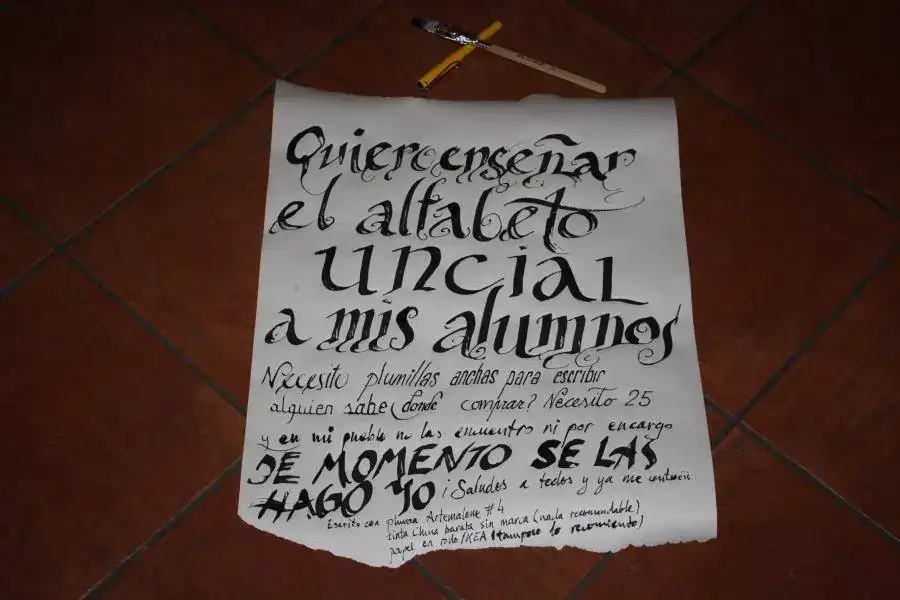 Quiero enseñar
el alfabeto
uncial
a mis alumnos
Necesito plumillas anchas para escribir
alguien sabe donde comprar? Necesito 25
y en mi pueblo no las encuentro ni por encargo
DE MOMENTO SE LAS
HAGO YO ¡Saludos a todos y ya me contáis
Escrito con plumilla Artemalone #4
tinta china barata sin marca (nada recomendable)
papel en rollo IKEA (tampoco lo recomiendo)